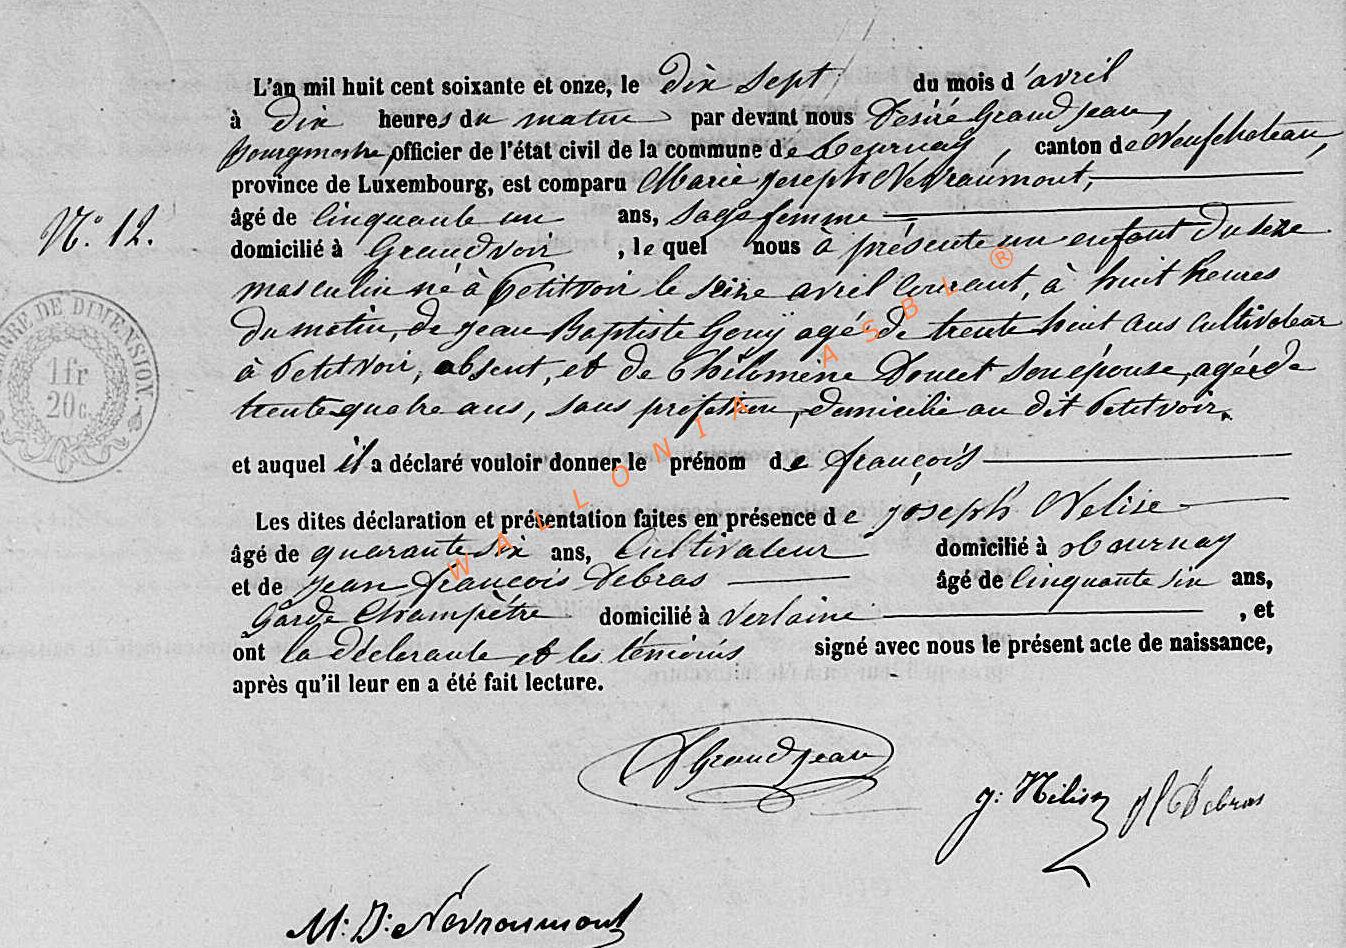 L'an mil huit cent soixante et onze, le dix sept du mois d'avril
à dix heures du matin par devant nous Désiré Grandjean,
Bourgmestre, officier de l'état civil de la commune de Tournay, canton de Neufchateau,
province de Luxembourg, est comparu Marie Joseph Nevraumont,
âgé de cinquante un ans, sage femme
N.° 12.
domicilié à Grandvoir, le quel nous à présenté un enfant du sexe
masculin né à Petitvoir le seize avril courant, à huit heures
du matin, de Jean Baptiste Gouy agé de trente huit ans cultivateur
à Petitvoir, absent, et de Philomène Doucet son épouse, agée de
trente quatre ans, sans profession, domicilié au dit Petitvoir.
et auquel il a déclaré vouloir donner le prénom de François
Les dites déclaration et présentation faites en présence de Joseph Nelise
âgé de quarante six ans, Cultivateur domicilié à Tournay
et de Jean François Debras âgé de cinquante six ans,
Garde Champêtre domicilié à Verlaine, et
ont la déclarante et les témoins signé avec nous le présent acte de naissance,
après qu'il leur en a été fait lecture.
TIMBRE DE DIMENSION.
1 fr
20 c.
WALLONIA ASBL ®
D Grandjean
J: Nelise
J F Debras
M: J: Nevraumont